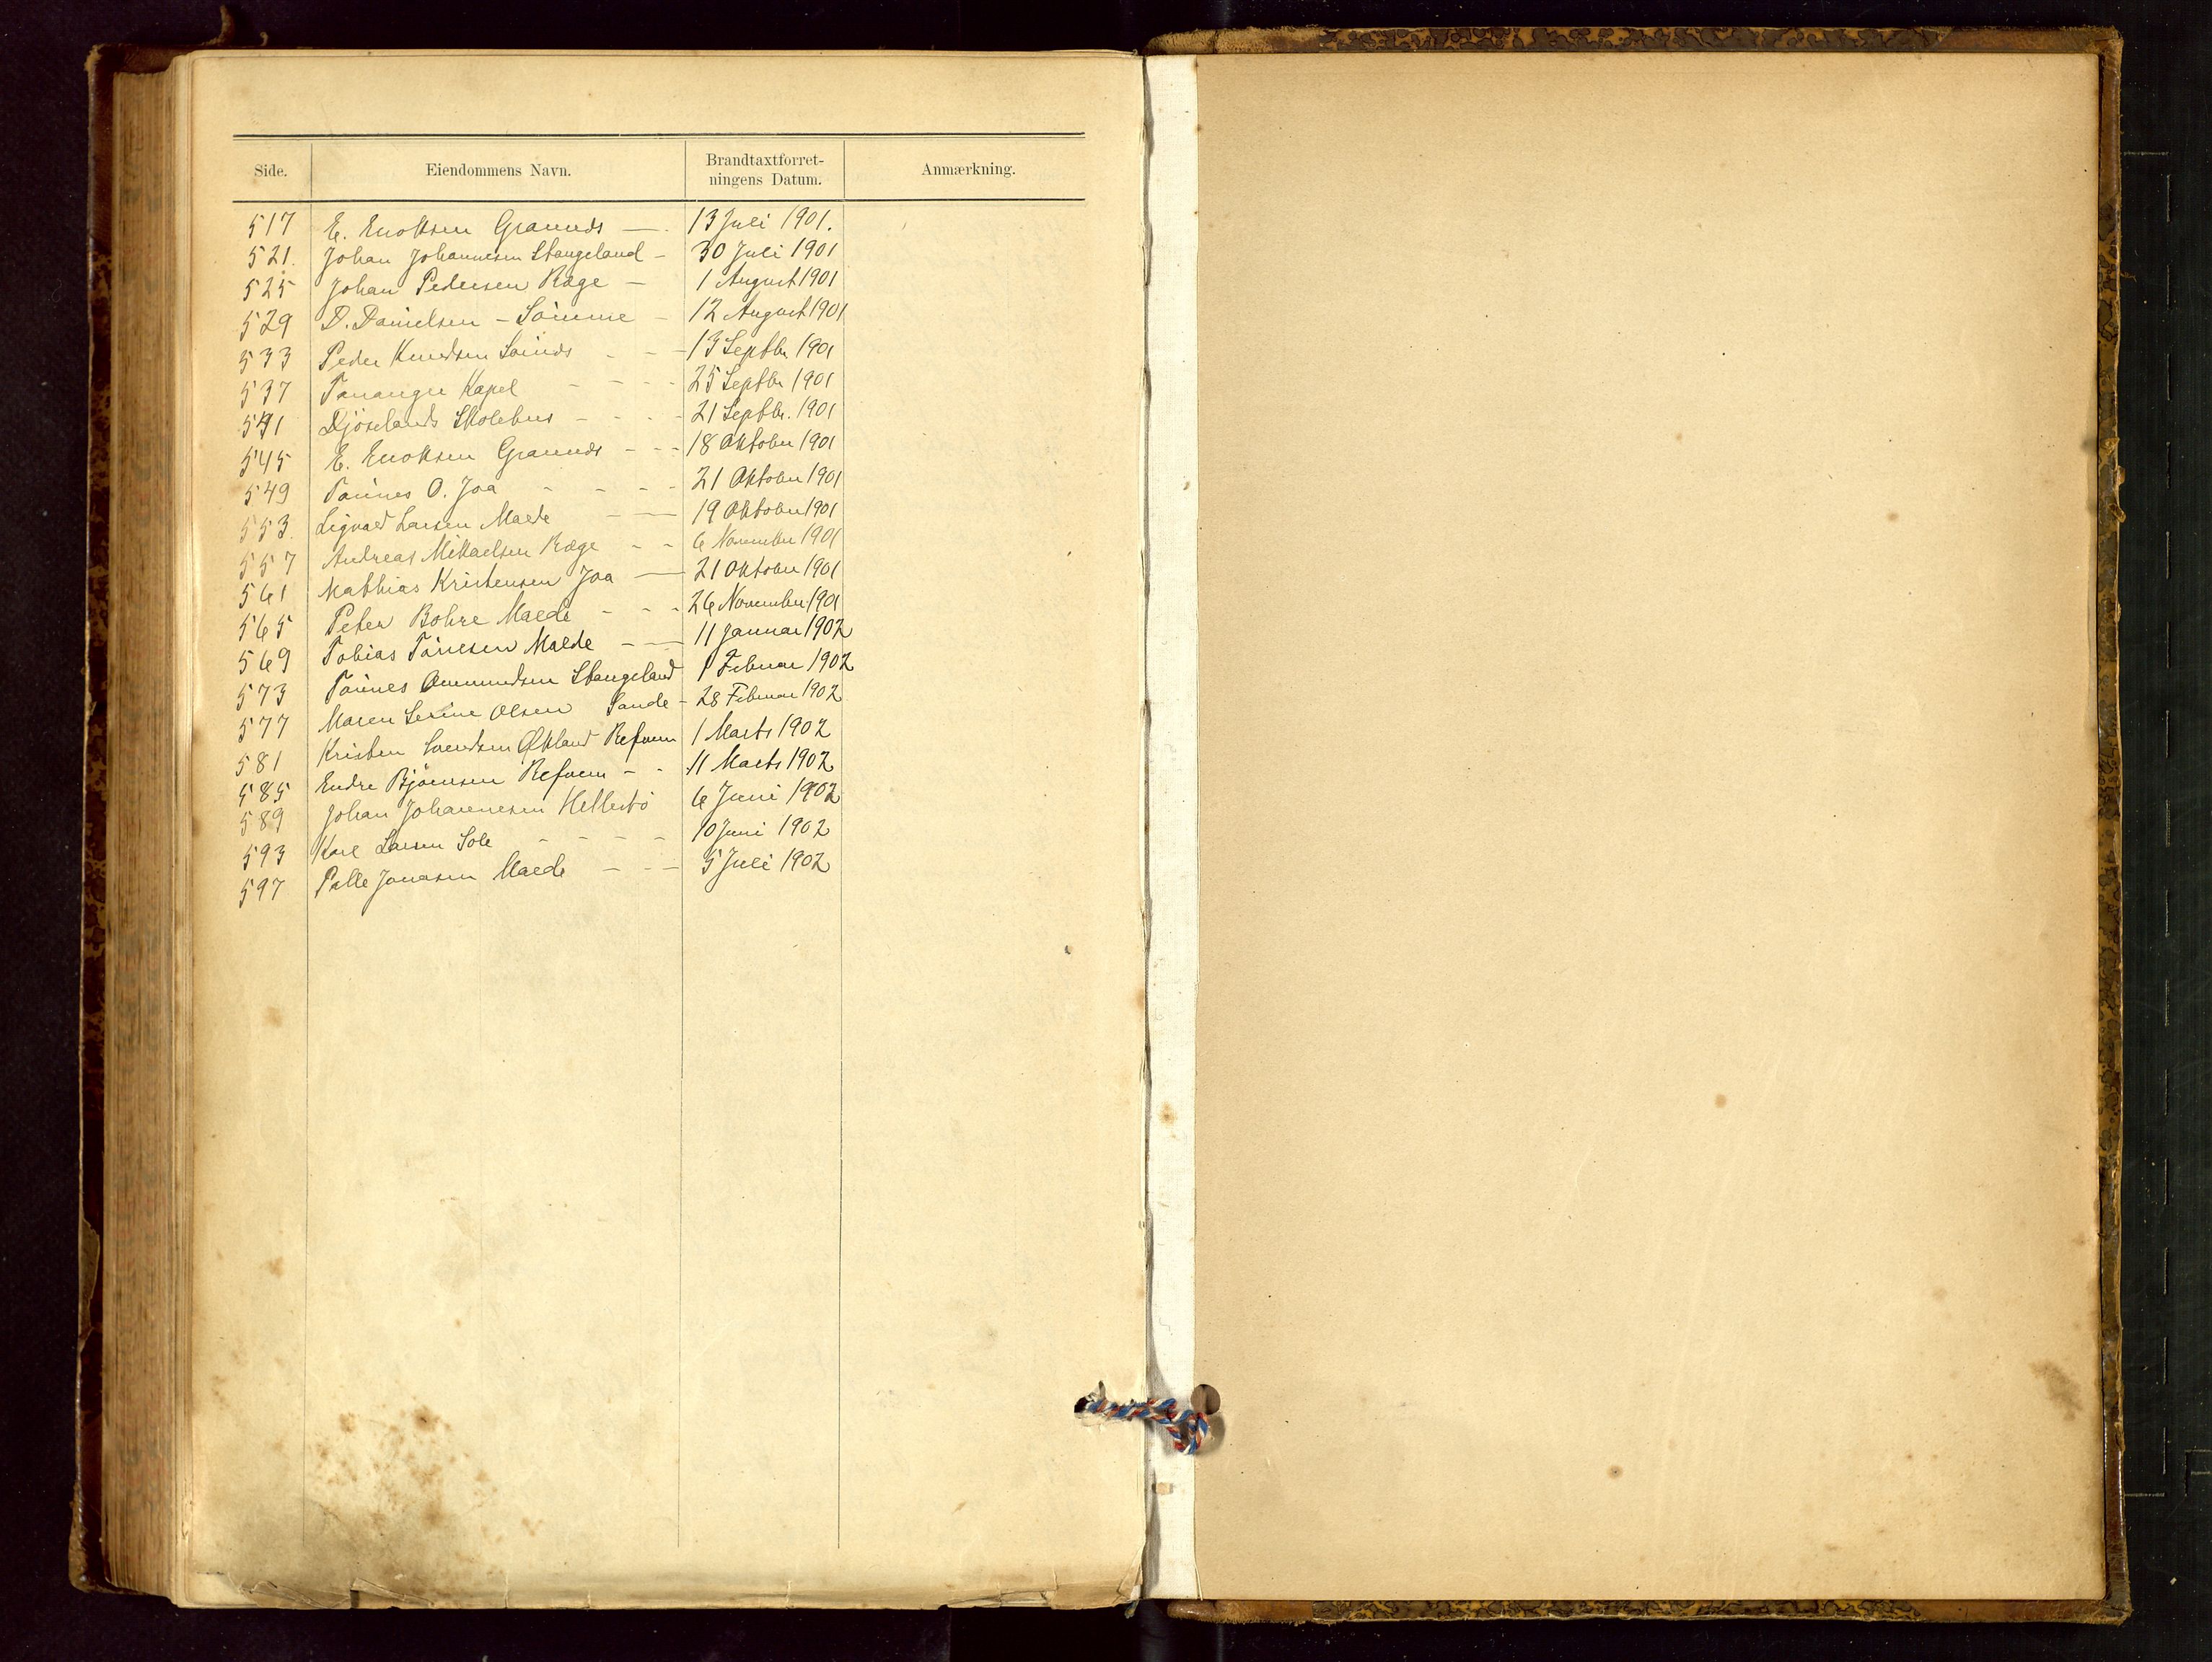 Side. Eiendommens Navn. Brandtaxtforret-ningens Datum. Anmærkning.
517 E. Enoksen Grannes — 13 Juli 1901.
521. Johan Johannesen Stangeland - 30 Juli 1901
525 Johan Pedersen Ræge — 1 August 1901
529 D. Danielsen - Sömme - 12 August 1901
533 Peder Knudsen - - 13 Septbr 1901
537 Tananger Kapel - - - - 25 Septbr 1901
541 Skolehus - - - - 21 Septbr. 1901
545 E. Enoksen Grannes - - - 18 Oktober 1901
549 Tönnes O. Joa - - - - 21 Oktober 1901
553. Sigvald Larsen Malde - — 19 Oktober 1901
557 Andreas Mikaelsen Ræge - - 6 November 1901
561 Mathias Kristensen Joa — 21 Oktober 1901
565 Peter Bohre Malde - - - 26 November 1901
569 Tobias Tönnesen Malde - — 11 Januar 1902
573 Tönnes Ommundsen Stangeland 1 Februar 1902
577 Maren Serine Olsen Sande - 28 Februar 1902
581 Kristen Svendsen Økland Refsnes 1 Marts 1902
585 Endre Bjömsen Refsnes - - 11 Marts 1902
589 Johan Johannesen Hellestö 6 Juni 1902
593 Karl Larsen Sole - - - - 10 Juni 1902
597 Palle Jonasen Malde - - - 5 Juli 1902